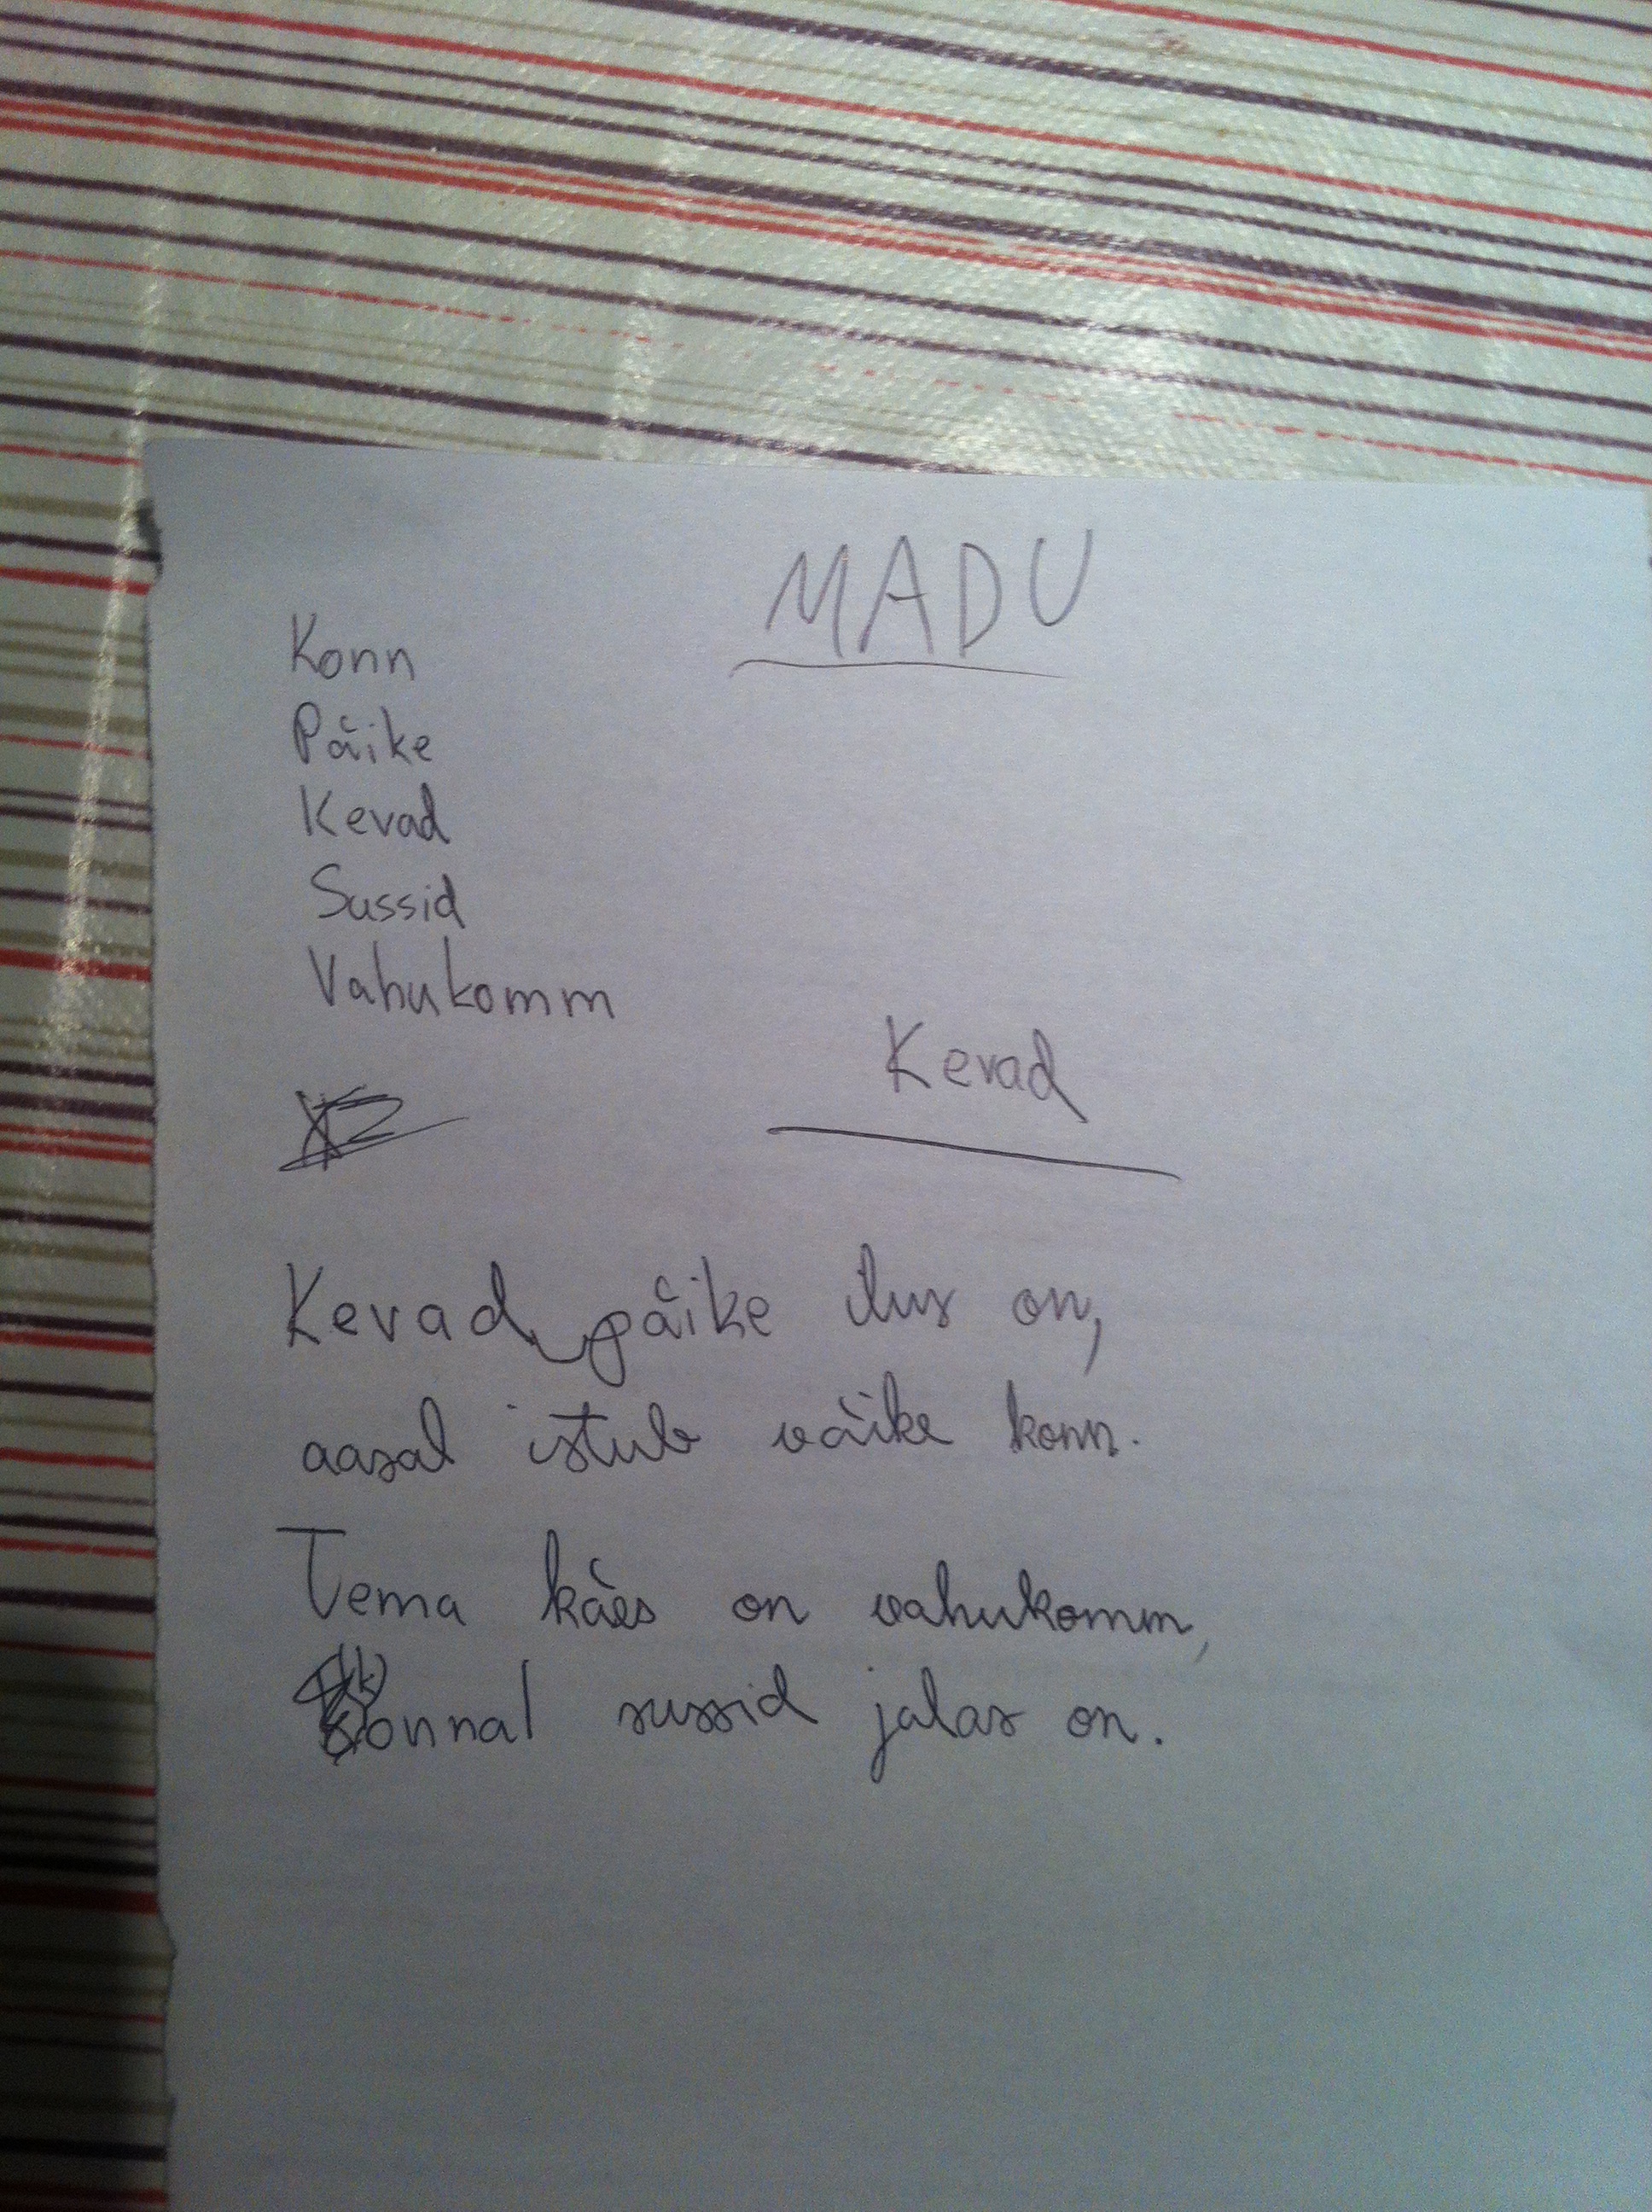 MADU
Konn
Päike
Kevad
Sussid
Vahukomm
Kevad
Kevad päike ilus on,
aasal istub väike konn.
Tema käes on vahukomm,
(k)onnal sussid jalas on.